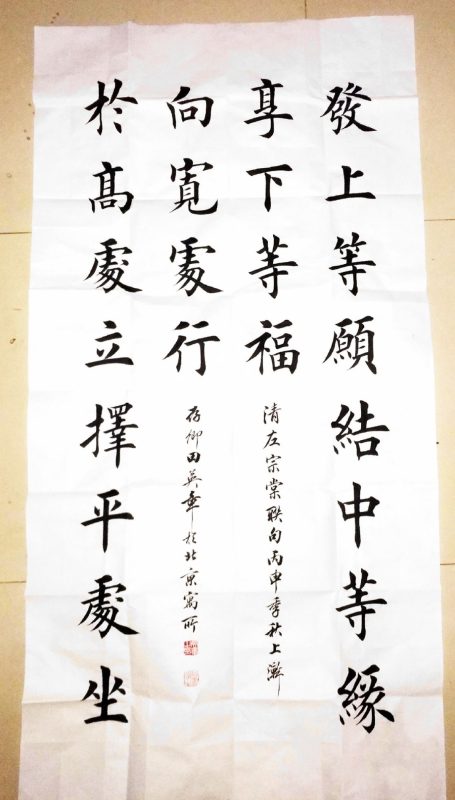 發上等願結中等緣
享下等福
於髙處立擇平處坐
向寬處行
清左宗棠联句丙申季秋上澣
存卿田英章於北京寓所